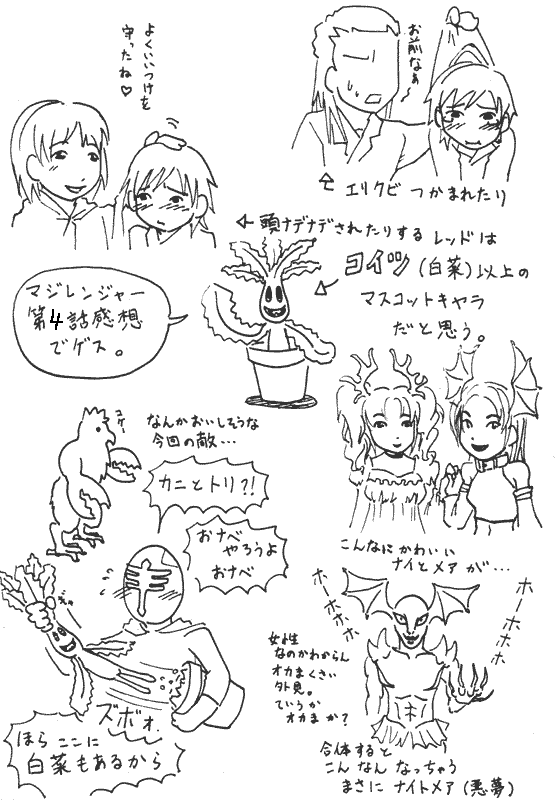 よくいいつけを
守ったね♡
お前なぁ〜
⇦ エリクビ つかまれたり
← 頭ナデナデされたりする レッドは
コイツ (白菜) 以上の
マスコットキャラ
だと思う。
マジレンジャー
第4話感想
でゲス。
コケー
なんかおいしそうな
今回の敵…
カニとトリ?!
おナベ
やろうよ
おナベ
ズボォ
ほら ここに
白菜もあるから
こんなにかわいい
ナイとメアが…
ホーホホホ
ホーホホホ
女性
なのかわからん
オカマくさい
外見。
ていうか
オカマか?
合体すると
こんなん なっちゃう
まさに ナイトメア (悪夢)